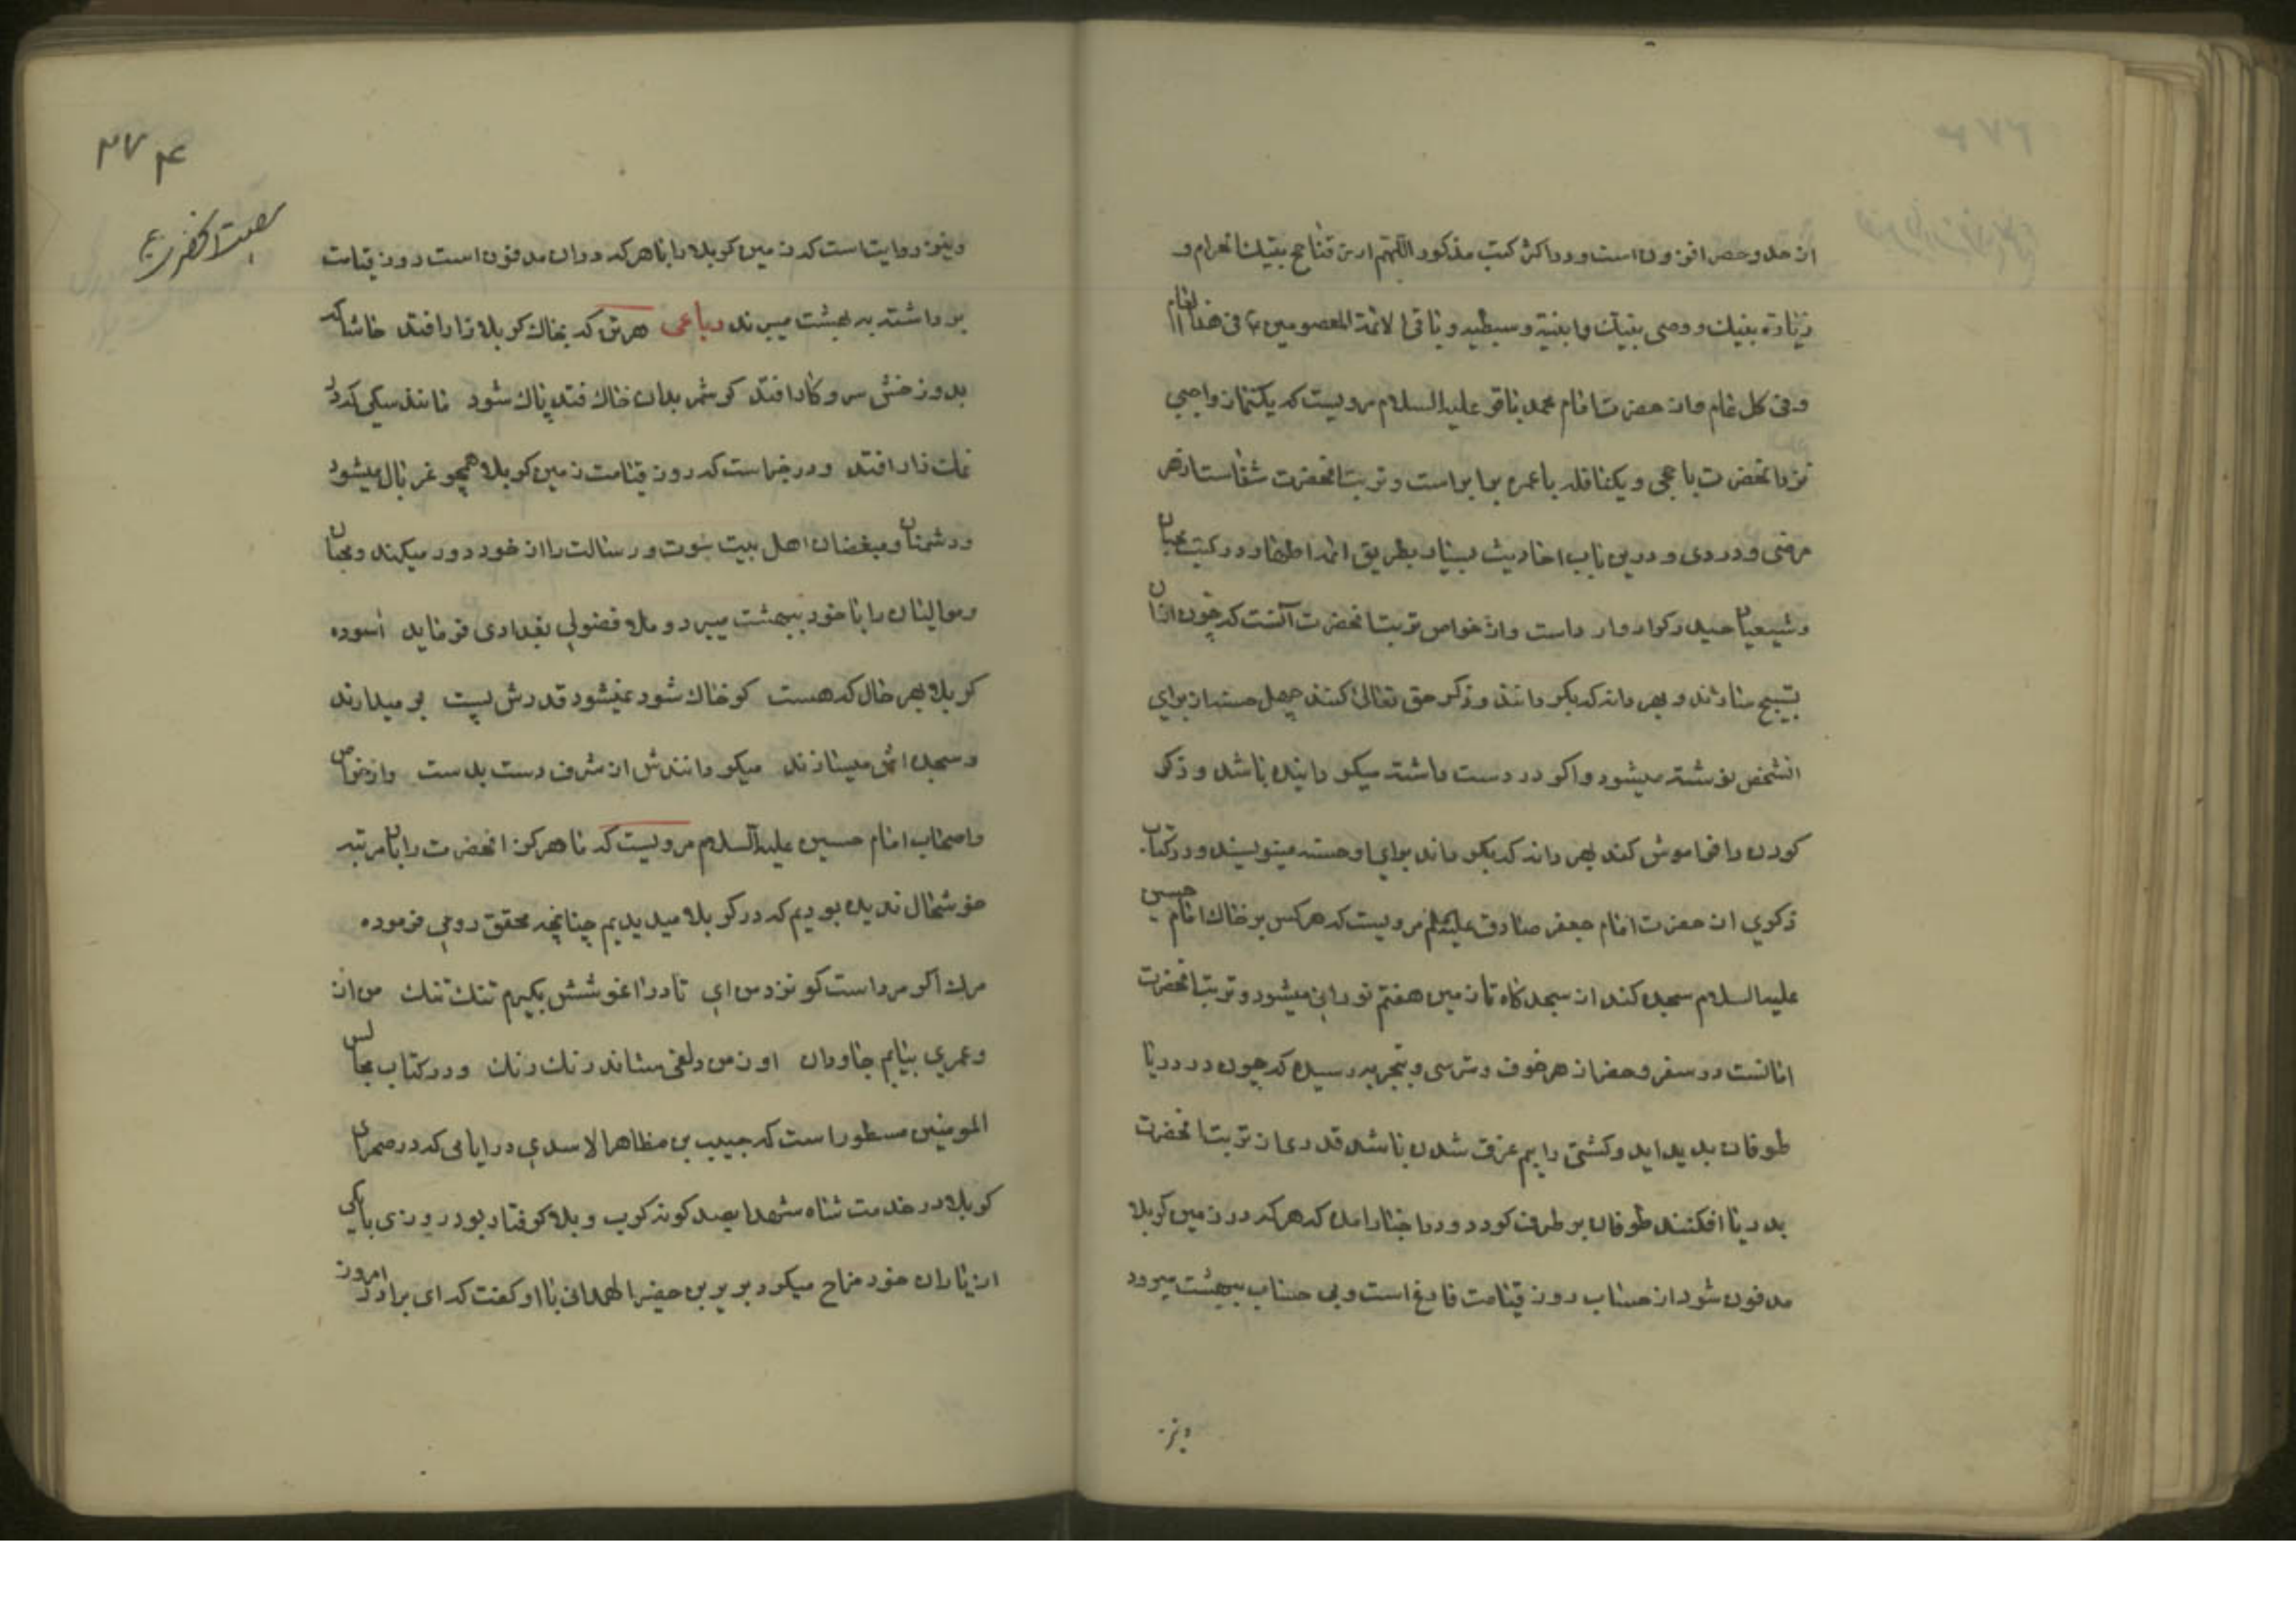 از حد و حصر افزونست و در اکثر کتب مذکور اللهم ارزقنا حج بیتک الحرام و
زیارة نبیک و وصی نبیک و ابنیة و سبطیه و باقی الائمة المعصومین ع فی هذا العام
و فی کل عام و از حضرت امام محمد باقر علیه السلام مرویست که یکنماز واجبی
نزد انحضرت با حجی و یکنافله با عمره برابر است و تربت انحضرت شفاست از هر
مرضی و دردی و درین باب احادیث بسیار بطریق ائمه اطهار در کتب محبان
و شیعیان حیدر کرار وارد است و از خواص تربت انحضرت آنست که چون از ان
تسبیح سازند و بهر دانه که بگردانند و ذکر حق تعالی کنند چهل حسنه از برای
انشخص نوشته میشود و اگر در دست داشته میگردانیده باشد و ذکر
کردن را فراموش کند بهر دانه که بگرداند برای او حسنه مینویسند و در کتاب
ذکری از حضرت امام جعفر صادق علیه السلم مرویست که هر کس بر خاک امام حسین
علیه السلام سجده کند از سجده کاه تا زمین هفتم نورانی میشود و تربت انحضرت
امانست در سفر و حضر از هر خوف و ترسی و بتجربه رسیده که چون در دریا
طوفان پدید اید و کشتی را بیم غرق شدن باشد قدری از تربت انحضرت
بدریا افکنند طوفان بر طرف کردد و در اخبار امده که هر که در زمین کربلا
مدفون شود از حساب روز قیامت فارغ است و بی حساب ببهشت میرود
و نیز
۳۷۴
و نیز روایت است که زمین کربلا را با هر که در ان مدفون است روز قیامت
برداشته به بهشت میبرند رباعی هر تن که بخاک کربلا زار افتد حاشا که
بدوزخش سر و کار افتد گر شمر بدان خاک فتد پاک شود مانند سگی که در
نمک زار افتد و در خبر است که روز قیامت زمین کربلا همچو غربال میشود
و دشمنان و مبغضان اهل بیت نبوت و رسالت را از خود دور میکند و محبان
و موالیان را با خود ببهشت میبرد و ملا فضولی بغدادی فرماید آسوده
کربلا بهر حال که هست گر خاک شود نمیشود قدرش پست بر میدارند
و سبحه اش میسازند میگردانندش از شرف دست بدست و از خواص
و اصحاب امام حسین علیه السلام مرویست که ما هرگز انحضرت را باین مرتبه
خوشحال ندیده بودیم که در کربلا میدیدیم چنانچه محقق رومی فرموده
مرک اگر مرد است گو نزد من ای تا در اغوشش بگیرم تنک تنک من از
و عمری بیابم جاودان او ز من دلقی ستاند رنک رنک و در کتاب مجالس
المومنین مسطور است که حبیب بن مظاهر الاسدی در ایامی که در صحرای
کربلا در خدمت شاه شهدا بصد گونه کرب و بلا گرفتار بود روزی با یکی
از یاران خود مزاح میکرد بریر بن حضیر الهمدانی با او گفت که ای برادر امروز